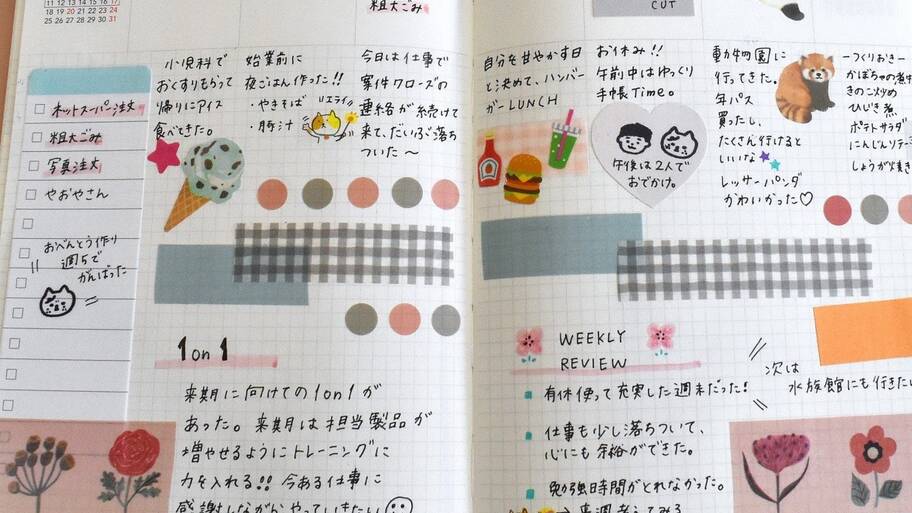 11 12 13 14 15 16 17
18 19 20 21 22 23 24
25 26 27 28 29 30 31
粗大ごみ
CUT
ネットスーパー注文
粗大ごみ
写真注文
やおやさん
おべんとう作り
週5で
がんばった
小児科で
おくすりもらって
帰りにアイス
食べてきた。
始業前に
夜ごはん作った!!
・やきそば
・豚汁
エライ
今日は仕事で
案件クローズの
連絡が続けて
来て、だいぶ落ち
ついた〜
1 on 1
来期に向けての1on1が
あった。来期は担当製品が
増やせるようにトレーニングに
力を入れる!!今ある仕事に
感謝しながらやっていきたい
自分を甘やかす日
と決めて、ハンバー
ガーLUNCH
お休み!!
午前中はゆっくり
手帳Time。
午後は2人で
おでかけ。
動物園に
行ってきた。
年パス
買ったし、
たくさん行けると
いいな
レッサーパンダ
かわいかった♡
ーつくりおきー
かぼちゃの煮
きのこ炒め
ひじき煮
ポテトサラダ
にんじんソテー
しょうが焼き
WEEKLY
REVIEW
有休使って充実した週末だった!
仕事も少し落ちついて、
心にも余裕ができた。
勉強時間がとれなかった。
→来週考えてみる
次は
水族館にも行きたい